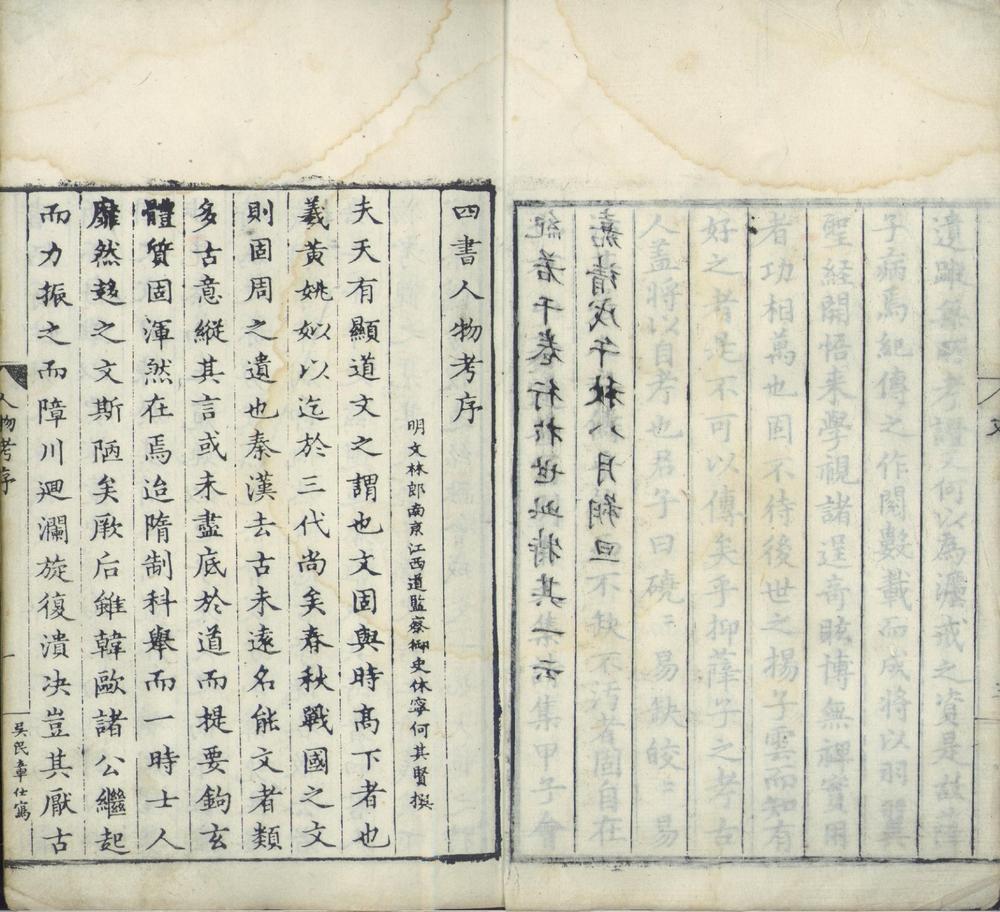 考謂之何以為灋戒之資是故薛
子病焉紀傳之作閱數載而成將以羽翼
聖経開悟来學視諸逞奇眩博無禆實用
者功相萬也固不待後世之揚子雲而知有
好之者是不可以傳矣乎抑薛子之考古
人蓋將以自考也君子曰磽〻易缺皎〻易
嘉靖戊午秋八月朔旦
紀若干卷行於世此特其一云
四書人物考序
明文林郎南京江西道監察御史休寧何其賢撰
夫天有顯道文之謂也文固與時髙下者也
羲黄姚姒以迄於三代尚矣春秋戰國之文
則固周之遺也秦漢去古未遠名能文者類
多古意縱其言或未盡底於道而提要鉤玄
體質固渾然在焉迨隋制科舉而一時士人
靡然趍之文斯陋矣厥后雖韓歐諸公繼起
而力振之而障川廻瀾旋復潰决豈其厭古
人物考序
一
吴民章仕寫